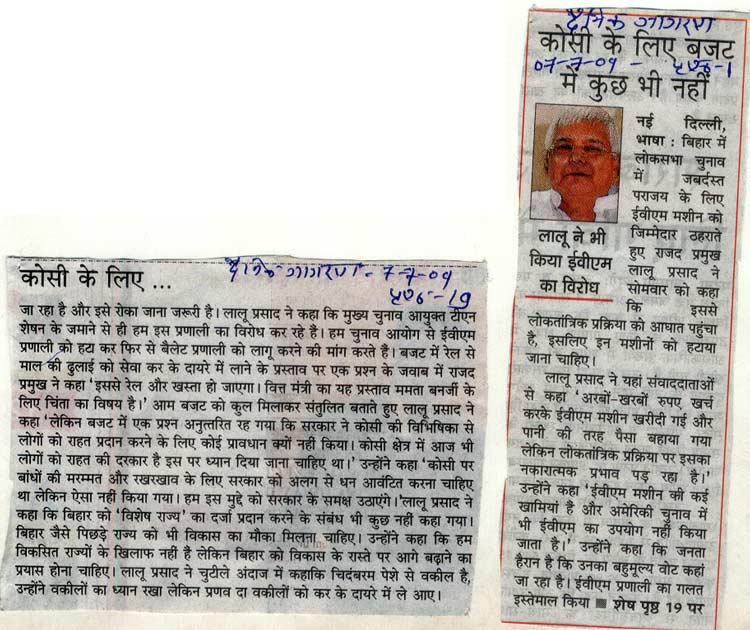 दैनिक जागरण
कोसी के लिए बजट
07-7-09 - पृष्ठ-1
में कुछ भी नहीं
नई दिल्ली,
भाषा : बिहार में
लोकसभा चुनाव
में जबर्दस्त
पराजय के लिए
ईवीएम मशीन को
जिम्मेदार ठहराते
हुए राजद प्रमुख
लालू प्रसाद ने
सोमवार को कहा
कि इससे
लालू ने भी
किया ईवीएम
का विरोध
लोकतांत्रिक प्रक्रिया को आघात पहुंचा
है, इसलिए इन मशीनों को हटाया
जाना चाहिए।
लालू प्रसाद ने यहां संवाददाताओं
से कहा 'अरबों-खरबों रुपए खर्च
करके ईवीएम मशीन खरीदी गई और
पानी की तरह पैसा बहाया गया
लेकिन लोकतांत्रिक प्रक्रिया पर इसका
नकारात्मक प्रभाव पड़ रहा है।'
उन्होंने कहा 'ईवीएम मशीन की कई
खामियां है और अमेरिकी चुनाव में
भी ईवीएम का उपयोग नहीं किया
जाता है।' उन्होंने कहा कि जनता
हैरान है कि उनका बहुमूल्य वोट कहां
जा रहा है। ईवीएम प्रणाली का गलत
इस्तेमाल किया ■ शेष पृष्ठ 19 पर
कोसी के लिए ...
दैनिक जागरण - 7-7-09
पृष्ठ-19
जा रहा है और इसे रोका जाना जरूरी है। लालू प्रसाद ने कहा कि मुख्य चुनाव आयुक्त टीएन
शेषन के जमाने से ही हम इस प्रणाली का विरोध कर रहे है। हम चुनाव आयोग से ईवीएम
प्रणाली को हटा कर फिर से बैलेट प्रणाली को लागू करने की मांग करते हैं। बजट में रेल से
माल की ढुलाई को सेवा कर के दायरे में लाने के प्रस्ताव पर एक प्रश्न के जवाब में राजद
प्रमुख ने कहा 'इससे रेल और खस्ता हो जाएगा। वित्त मंत्री का यह प्रस्ताव ममता बनर्जी के
लिए चिंता का विषय है।' आम बजट को कुल मिलाकर संतुलित बताते हुए लालू प्रसाद ने
कहा 'लेकिन बजट में एक प्रश्न अनुत्तरित रह गया कि सरकार ने कोसी की विभिषिका से
लोगों को राहत प्रदान करने के लिए कोई प्रावधान क्यों नही किया। कोसी क्षेत्र में आज भी
लोगों को राहत की दरकार है इस पर ध्यान दिया जाना चाहिए था।' उन्होंने कहा 'कोसी पर
बांधों की मरम्मत और रखरखाव के लिए सरकार को अलग से धन आवंटित करना चाहिए
था लेकिन ऐसा नही किया गया। हम इस मुद्दे को सरकार के समक्ष उठाएंगे।'लालू प्रसाद ने
कहा कि बिहार को 'विशेष राज्य' का दर्जा प्रदान करने के संबंध भी कुछ नही कहा गया।
बिहार जैसे पिछड़े राज्य को भी विकास का मौका मिलना चाहिए। उन्होंने कहा कि हम
विकसित राज्यों के खिलाफ नही है लेकिन बिहार को विकास के रास्ते पर आगे बढ़ाने का
प्रयास होना चाहिए। लालू प्रसाद ने चुटीले अंदाज में कहाकि चिदंबरम पेशे से वकील है,
उन्होंने वकीलों का ध्यान रखा लेकिन प्रणव दा वकीलों को कर के दायरे में ले आए।